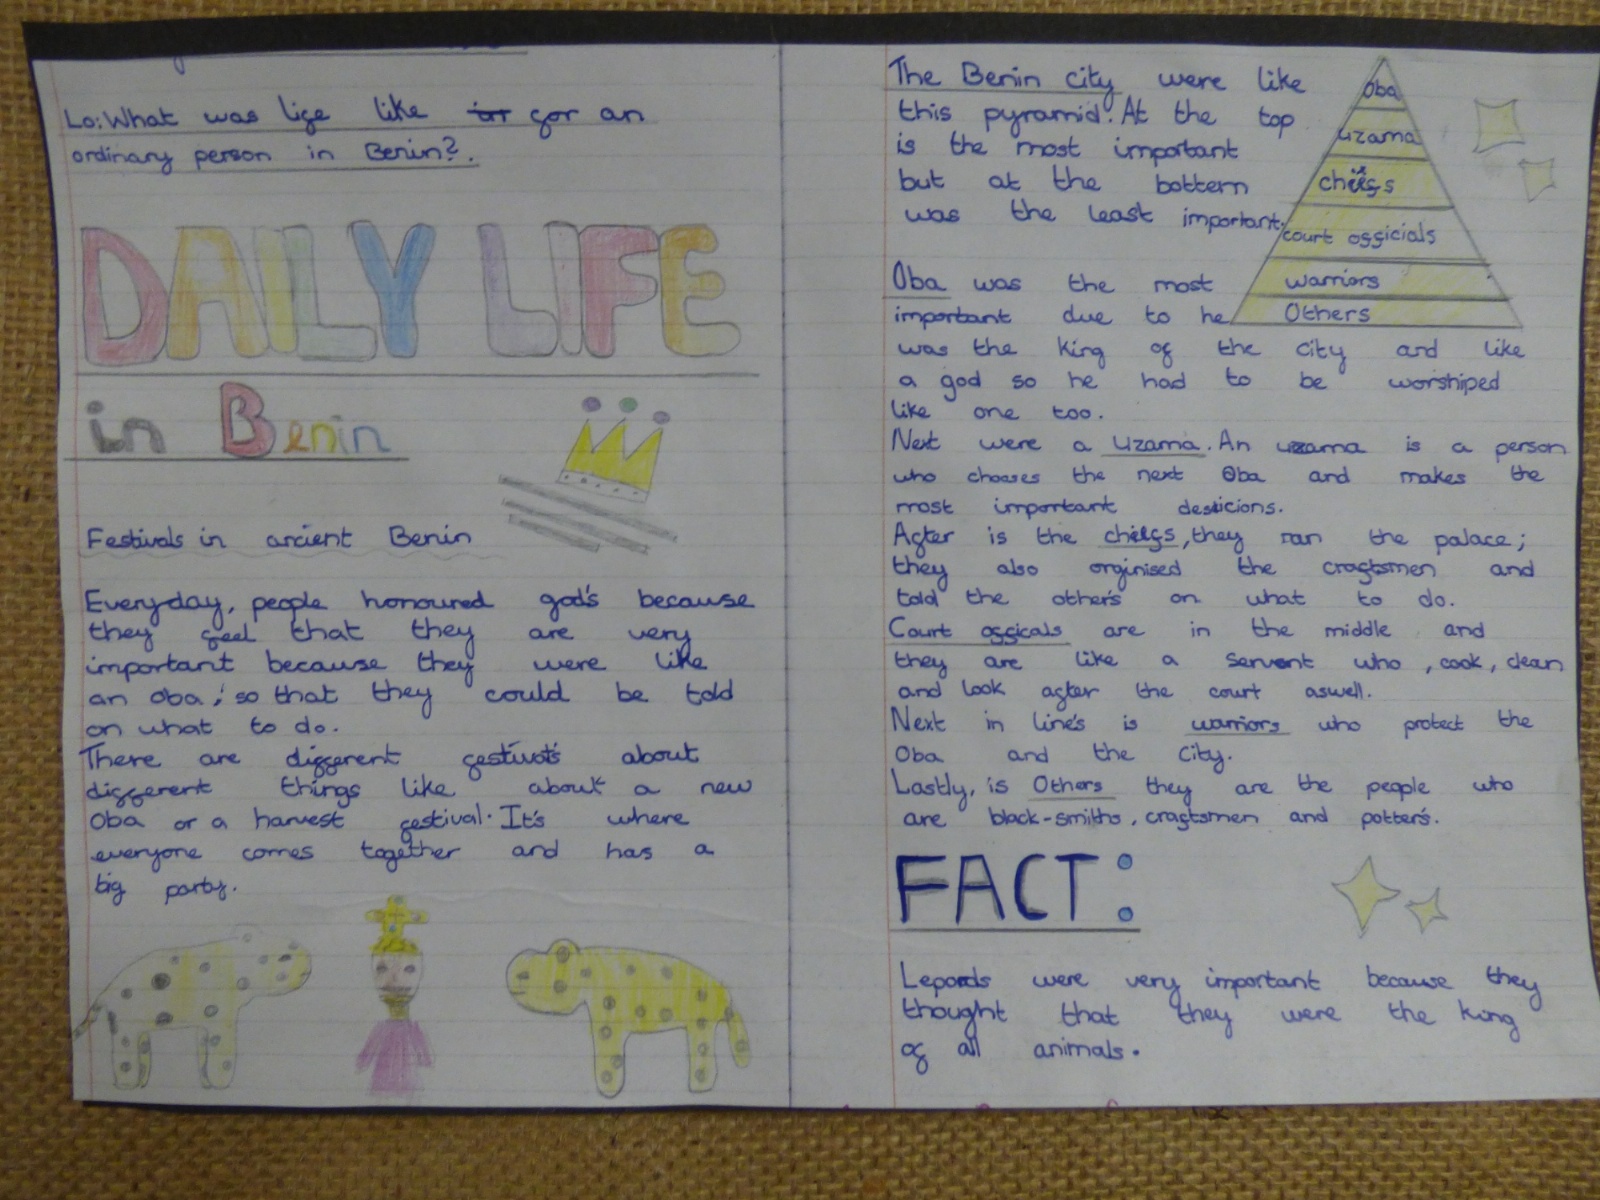 Lo: What was life like for an
ordinary person in Benin?.
DAILY LIFE
in Benin
Festivals in ancient Benin
Everyday, people honoured god's because
they feel that they are very
important because they were like
an oba; so that they could be told
on what to do.
There are different festivals about
different things like about a new
Oba or a harvest festival. It's where
everyone comes together and has a
big party.
The Benin city were like
this pyramid. At the top
is the most important
but at the bottem
was the least important.
Oba
uzama
chiefs
court officials
warriors
Others
Oba was the most
important due to he
was the king of the city and like
a god so he had to be worshiped
like one too.
Next were a uzama. An uzama is a person
who chooses the next Oba and makes the
most important desticions.
After is the chiefs, they ran the palace;
they also orginised the craftsmen and
told the other's on what to do.
Court officals are in the middle and
they are like a servent who , cook, clean
and look after the court aswell.
Next in line's is warriors who protect the
Oba and the city.
Lastly, is Others they are the people who
are black-smiths, craftsmen and potter's.
FACT:
Lepords were very important because they
thought that they were the king
of all animals.